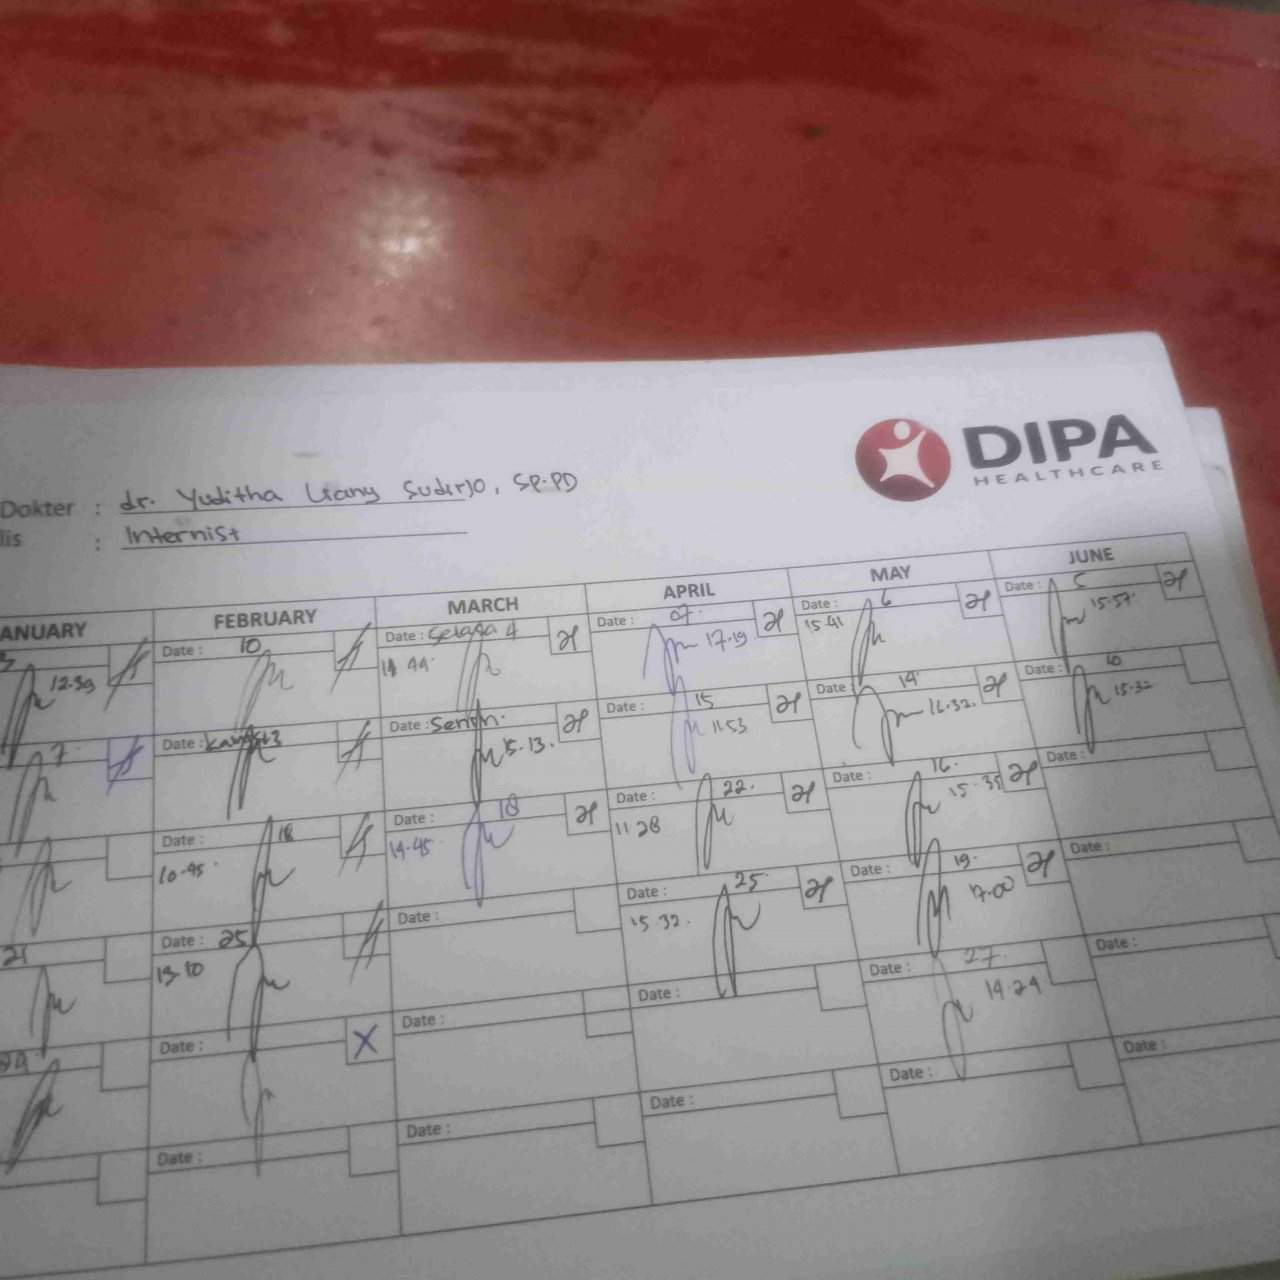 DIPA
HEALTHCARE
Dokter : dr. Yuditha Liany Sudirjo, SP.PD
lis : Internist
ANUARY FEBRUARY MARCH APRIL MAY JUNE
3 Date : 10 Date : Selasa 4 Date : 07. Date : 6 Date : 5
12.39 14 44. 17.19 15.41 15.57.
7. Date : Kamis 13 Date : Senin. Date : 15 Date : 14 Date : 10
15.13. 11.53 16.32. 15.32
Date : 18 Date : 18 Date : 22. Date : 16. Date :
10.45 14.45 11.28 15.35
21 Date : 25 Date : Date : 25. Date : 19. Date :
13.10 15.32. 17.00
Date : X Date : Date : Date : 27. Date :
14.24
Date : Date : Date : Date : Date :